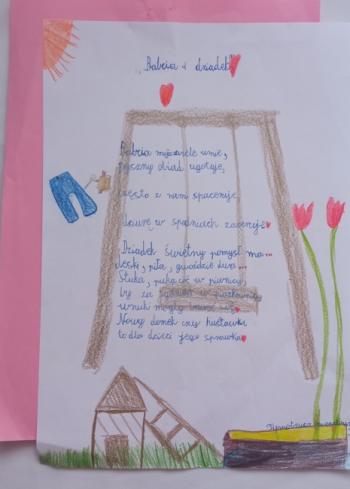 „Babcia i dziadek"
Babcia wiele umie,
pyszny obiad ugotuje,
często z nami spaceruje
dziurę w spodniach zaceruje
Dziadek świetny pomysł ma...
deski, piła, gwoździe dwa...
Stuka, puka coś w piwnicy,
by za
wnuk mógł
Nowy domek czy huśtawka
to dla dzieci jego sprawka